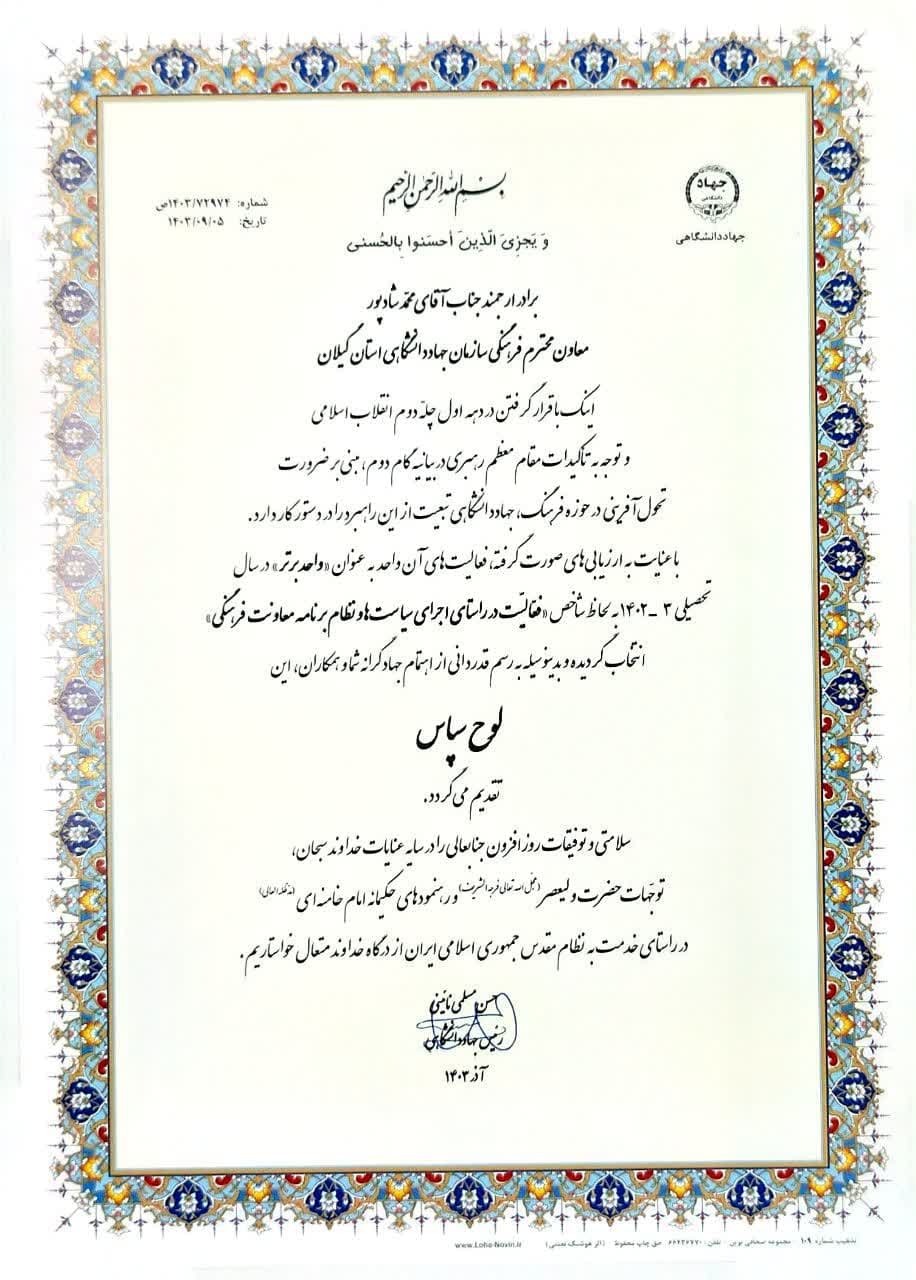 جهاد
دانشگاهی
جهاددانشگاهی
بسم الله الرحمن الرحیم
وَ يَجزِیَ الَّذينَ أحسَنوا بِالحُسنی
شماره: ۱۴۰۳/۷۲۹۷۴ص
تاریخ: ۱۴۰۳/۰۹/۰۵
برادر ارجمند جناب آقای محمد شادپور
معاون محترم فرهنگی سازمان جهاددانشگاهی استان گیلان
اینک با قرار گرفتن در دهه اول چلّه دوم انقلاب اسلامی
و توجه به تأکیدات مقام معظم رهبری در بیانیه گام دوم، مبنی بر ضرورت
تحول آفرینی در حوزه فرهنگ، جهاددانشگاهی تبعیت از این راهبرد را در دستور کار دارد.
با عنایت به ارزیابی های صورت گرفته، فعالیت های آن واحد به عنوان «واحد برتر» در سال
تحصیلی ۳ -۱۴۰۲ به لحاظ شاخص «فعالیّت در راستای اجرای سیاست ها و نظام برنامه معاونت فرهنگی»
انتخاب گردیده و بدینوسیله به رسم قدردانی از اهتمام جهادگرانه شما و همکاران، این
لوح سپاس
تقدیم می گردد.
سلامتی و توفیقات روز افزون جنابعالی را در سایه عنایات خداوند سبحان،
توجّهات حضرت ولیعصر (عجّل الله تعالی فرجه الشریف) و رهنمودهای حکیمانه امام خامنه ای (مدّظله العالی)
در راستای خدمت به نظام مقدس جمهوری اسلامی ایران از درگاه خداوند متعال خواستاریم.
حسن مسلمی نائینی
رئیس جهاددانشگاهی
آذر ۱۴۰۳
تذهیب شماره ۱۰۹ مجموعه صحافی نوین - تلفن: ۶۶۴۳۶۷۷۰ حق چاپ محفوظ (اثر هوشنگ نعمتی) www.Loho-Novin.ir